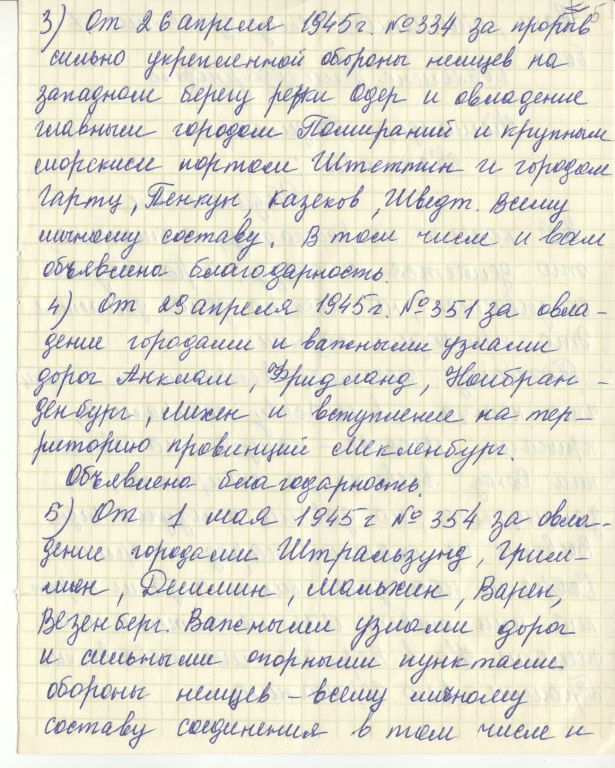 5
3) От 26 апреля 1945г. №334 за прорыв
сильно укрепленной обороны немцев на
западном берегу реки Одер и овладение
главным городом Помираний и крупным
морским портом Штеттин и городом
Гартц, Пенкун, Казеков, Шведт. Всему
личному составу. В том числе и вам
объявлена благодарность.
4) От 29 апреля 1945г. №351 за овла-
дение городами и важными узлами
дорог Анклам, Фридланд, Ноибран-
денбург, Лихен и вступление на тер-
риторию провинций Мекленбург.
Объявлена благодарность.
5) От 1 мая 1945г №354 за овла-
дение городами Штральзунд, Грим-
мен, Деммин, Мальхин, Варен,
Везенберг. Важными узлами дорог
и сильными опорными пунктами
обороны немцев – всему личному
составу соединения в том числе и